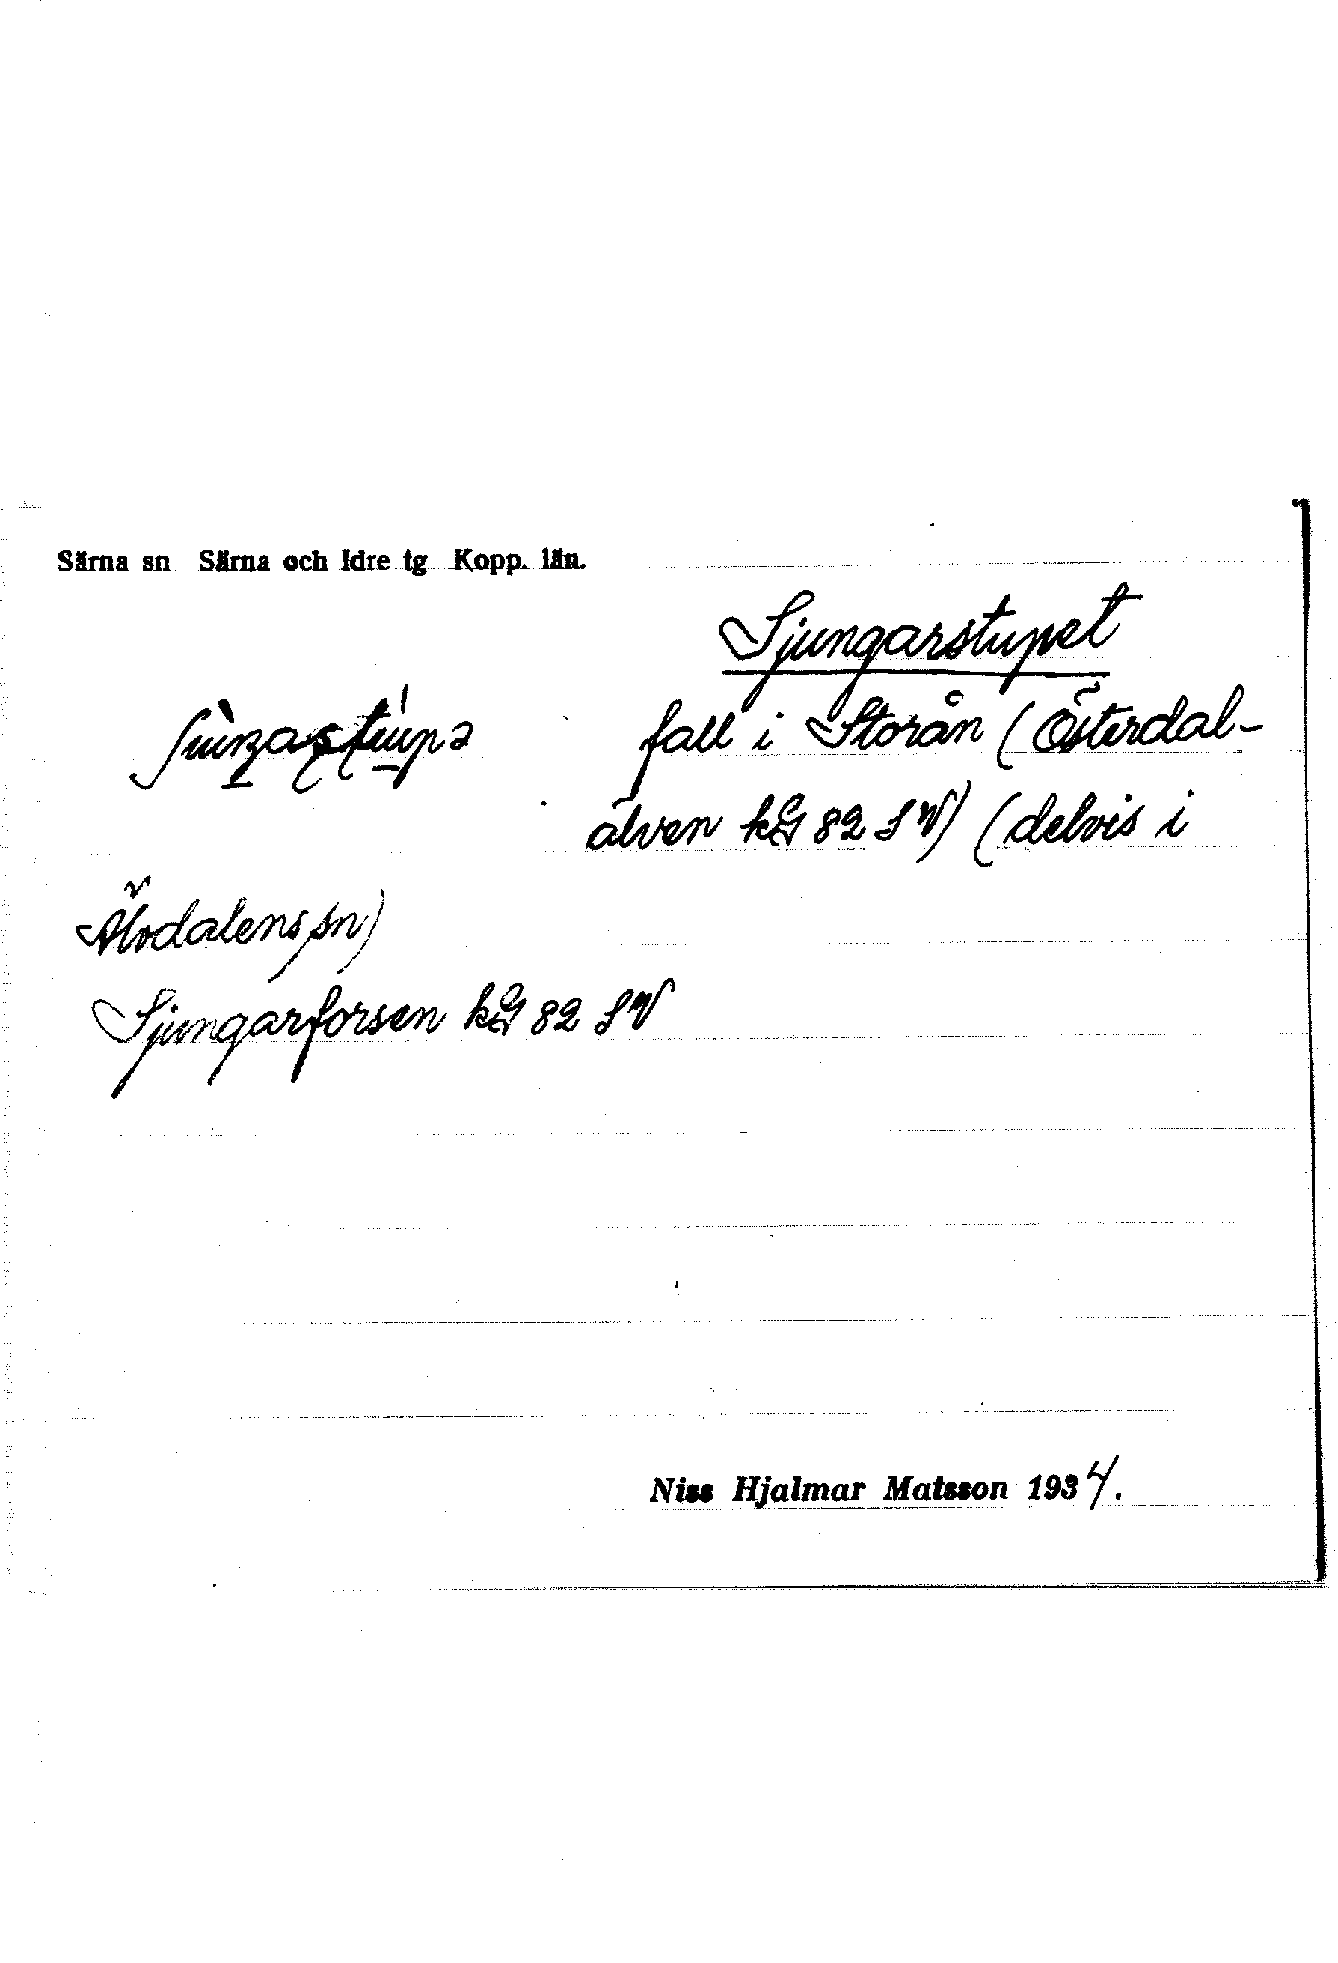 Särna sn Särna och Idre tg Kopp. län.
Sjungarstupet
fall i Storån (Österdal-
älven kG 82 SV) (delvis i
Älvdalens sn)
Sjungarforsen kG 82 SV
Niss Hjalmar Matsson 1934.